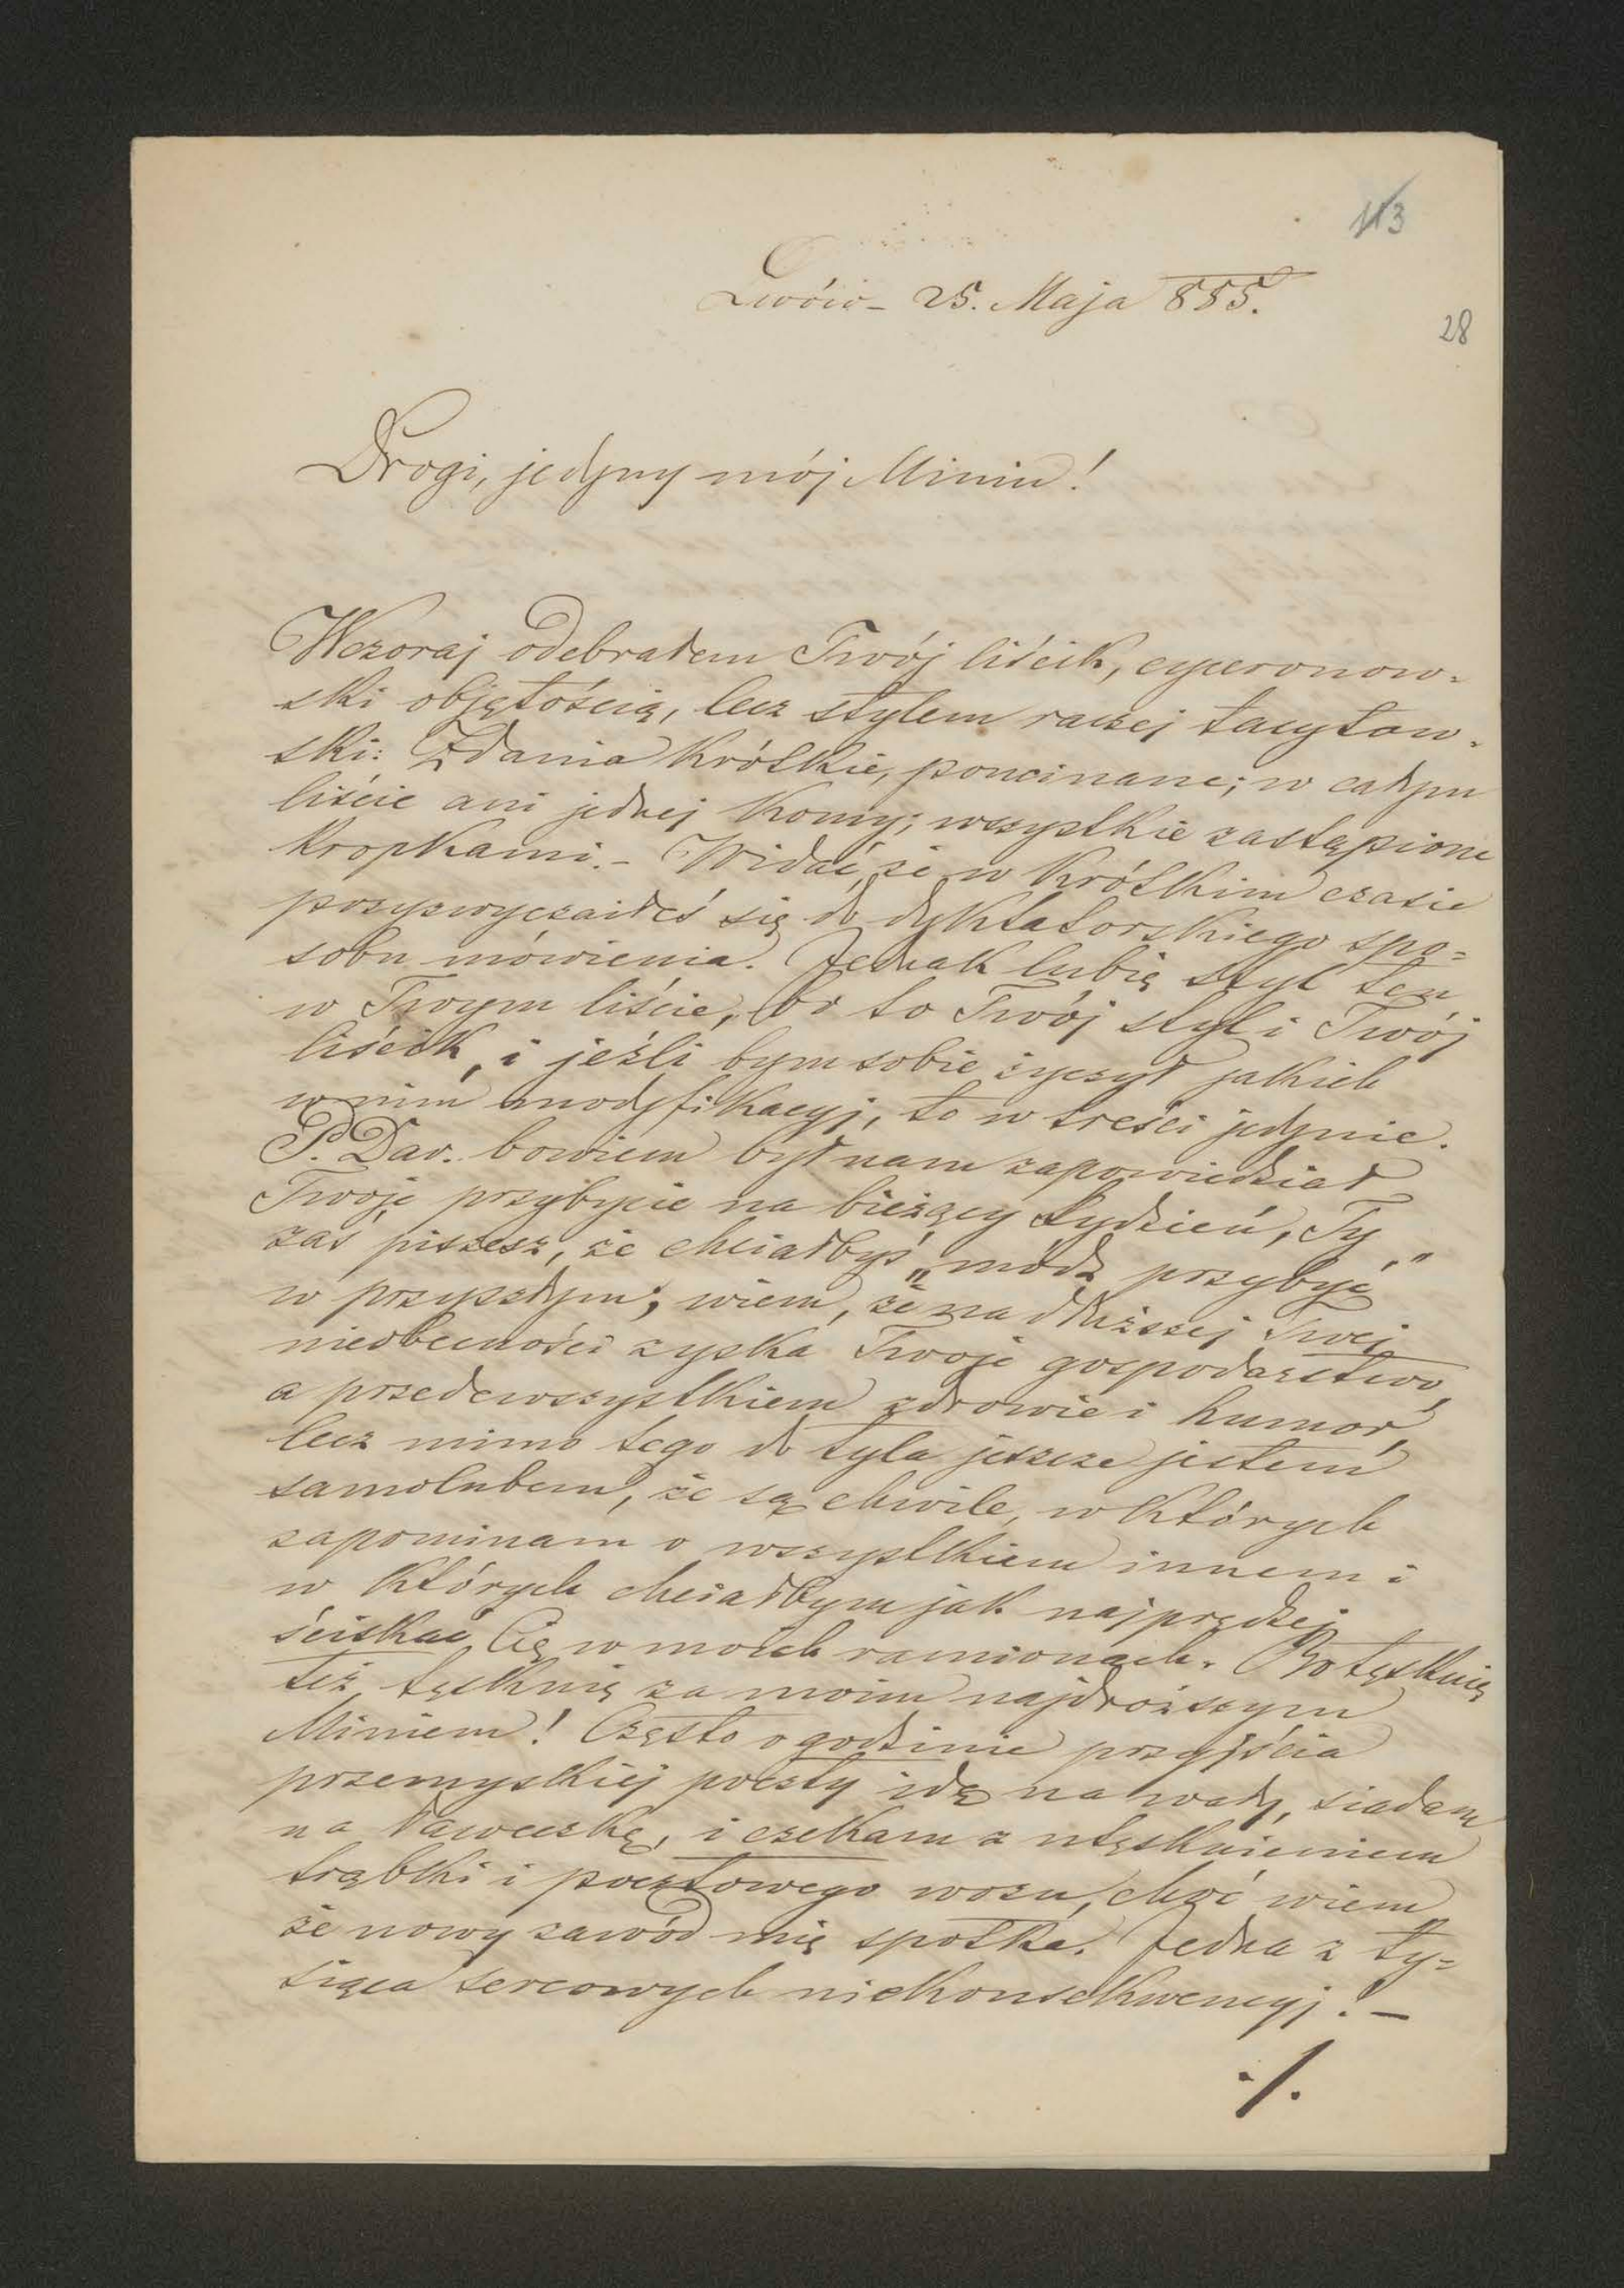 113
Lwów - 25. Maja 855.
28
Drogi, jedyny mój Miniu!
Wczoraj odebrałem Twój liścik, cyceronow-
ski objętością, lecz stylem raczej tacytow-
ski: Zdania krótkie, poucinane; w całym
liście ani jednej komy; wszystkie zastąpione
kropkami. - Widać, że w krótkim czasie
przyzwyczaiłeś się do dyktatorskiego spo-
sobu mówienia. Jednak lubię styl ten
w Twoym liście, bo to Twój styl i Twój
liścik, i jeźli bym sobie życzył jakich
w nim modyfikacyj, to w treści jedynie.
P. Dav. bowiem był nam zapowiedział
Twoje przybycie na bieżący tydzień, Ty
zaś piszesz, że chciałbyś „módz przybyć"
w przyszłym; wiem, że na dłuższej Twej
nieobecności zyska Twoje gospodarstwo,
a przedewszystkiem zdrowie i humor,
lecz mimo tego do tyla jeszcze jestem
samolubem, że są chwile, w których
zapominam o wszystkiem innem i
w których chciałbym jak najprędzej
ściskać Cię w moich ramionach. Bo tęsknię
też tęsknię za moim najdroższym
Miniem! Często o godzinie przyjścia
przemyskiéj poczty idę na wały, siadam
na ławeczkę, i czekam z utęsknieniem
trąbki i pocztowego wozu, choć wiem
że nowy zawód mię spotka. Jedna z ty-
siąca sercowych niekonsekwencyj. -
./.